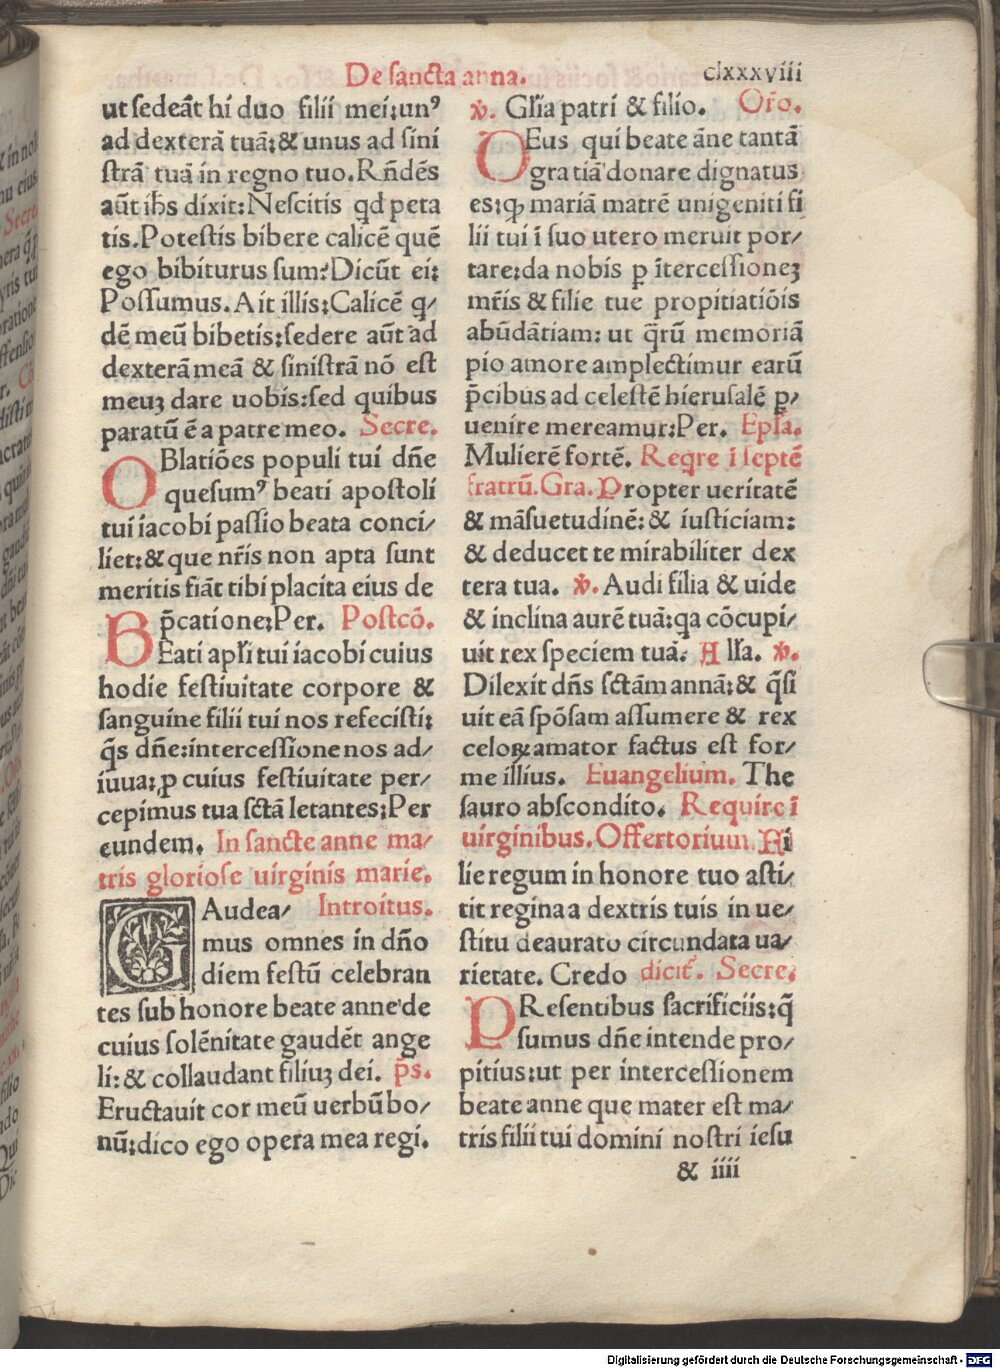 De sancta anna.
clxxxviii
ut sedeāt hi duo filii mei:un⁹
ad dexterā tuā:& unus ad sini
strā tuā in regno tuo. Rñdēs
aūt ihs dixit:Nescitis qd peta
tis.Potestis bibere calicē quē
ego bibiturus sum?Dicūt ei:
Possumus.Ait illis:Calicē q/
dē meū bibetis:sedere aūt ad
dexterā meā & sinistrā nō est
meuꝫ dare uobis:sed quibus
paratū ē a patre meo. Secre.
OBlatiōes populi tui dñe
quesum⁹ beati apostoli
tui iacobi passio beata conci/
liet:& que nr̄is non apta sunt
meritis fiāt tibi placita eius de
p̄catione:Per. Postcō.
BEati apl̄i tui iacobi cuius
hodie festiuitate corpore &
sanguine filii tui nos refecisti:
q̄s dñe:intercessione nos ad/
iuua:ꝓ cuius festiuitate per/
cepimus tua sctā letantes:Per
eundem. In sancte anne ma/
tris gloriose uirginis marie.
GAudea/ Introitus.
mus omnes in dño
diem festū celebran
tes sub honore beate anne de
cuius solēnitate gaudēt ange
li:& collaudant filiuꝫ dei. p̄s.
Eructauit cor meū uerbū bo/
nū:dico ego opera mea regi.
℣. Gl̄ia patri & filio. Or̄o.
DEus qui beate āne tantā
gratiā donare dignatus
es:ꝙ mariā matrē unigeniti fi
lii tui ī suo utero meruit por/
tare:da nobis ꝑ ītercessioneꝫ
mr̄is & filie tue propitiatiōis
abūdātiam: ut q̄rū memoriā
pio amore amplectimur earū
p̄cibus ad celestē hierusalē ꝑ/
uenire mereamur:Per. Ep̄la.
Mulierē fortē. Reqre ī septē
fratrū.Gra. Propter ueritatē
& māsuetudinē:& iusticiam:
& deducet te mirabiliter dex
tera tua. ℣. Audi filia & uide
& inclina aurē tuā:qa cōcupi/
uit rex speciem tuā. All̄a. ℣.
Dilexit dñs sctām annā:& q̄si
uit eā spōsam assumere & rex
celoꝝ amator factus est for/
me illius. Euangelium. The
sauro abscondito. Require ī
uirginibus.Offertorium. Fi
lie regum in honore tuo asti/
tit regina a dextris tuis in ue/
stitu deaurato circundata ua/
rietate. Credo dicit̄. Secre.
PResentibus sacrificiis:q̄
sumus dñe intende pro/
pitius:ut per intercessionem
beate anne que mater est ma/
tris filii tui domini nostri iesu
& iiii
Digitalisierung gefördert durch die Deutsche Forschungsgemeinschaft - DFG